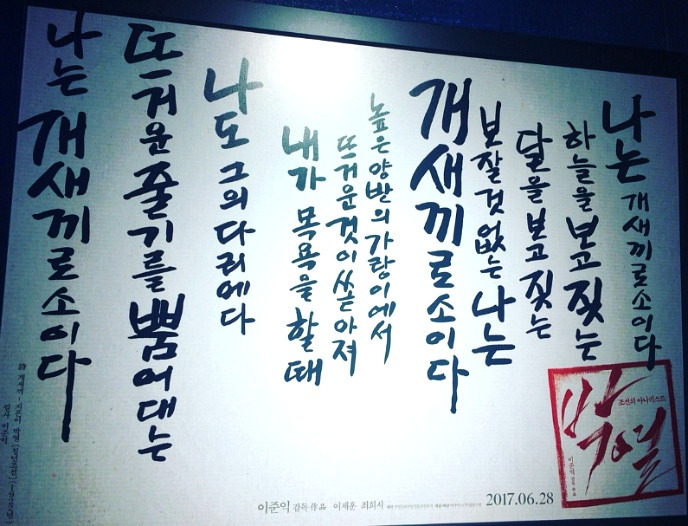 나는 개새끼로소이다
하늘을 보고 짖는
달을 보고 짖는
보잘것없는 나는
개새끼로소이다
높은 양반의 가랑이에서
뜨거운것이 쏟아져
내가 목욕을 할 때
나도 그의 다리에다
뜨거운 줄기를 뿜어대는
나는 개새끼로소이다
조선의 아나키스트
박열
이준익 감독 作品 이제훈 최희서
2017.06.28